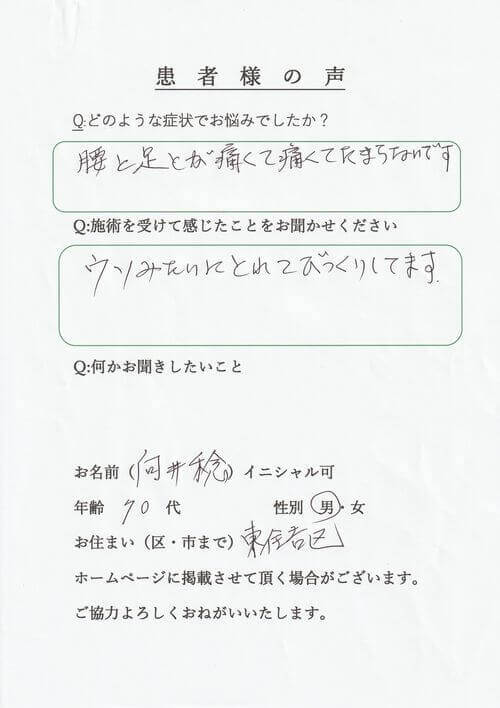 患者様の声
Q:どのような症状でお悩みでしたか？
腰と足とが痛くて痛くてたまらないです
Q:施術を受けて感じたことをお聞かせください
ウソみたいにとれてびっくりしてます.
Q:何かお聞きしたいこと
お名前（向井稔）イニシャル可
年齢 70 代 性別 男・女
お住まい（区・市まで）東住吉区
ホームページに掲載させて頂く場合がございます。
ご協力よろしくおねがいいたします。